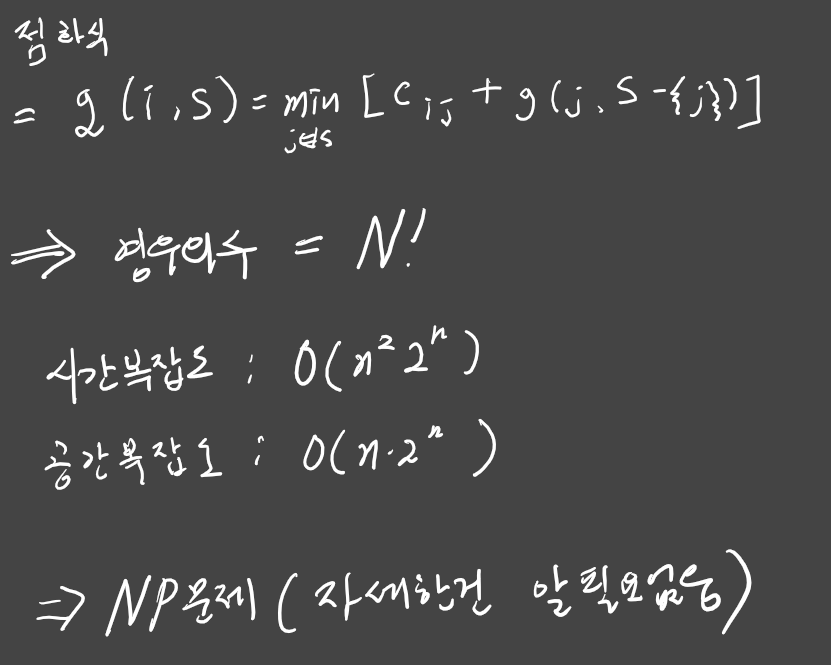 점화식
= g(i, S) = min [C ij + g(j, S-{j})]
j∈S
⇒ 경우의수 = N!
시간복잡도 : O(n² 2ⁿ)
공간복잡도 : O(n·2ⁿ)
⇒ NP문제 ( 자세한건 알필요없음)